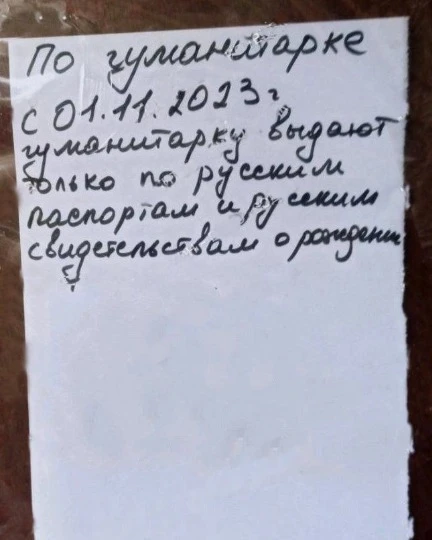 По гуманитарке
с 01.11.2023г
гуманитарку выдают
только по русским
паспортам и русским
свидетельствам о рождении
!